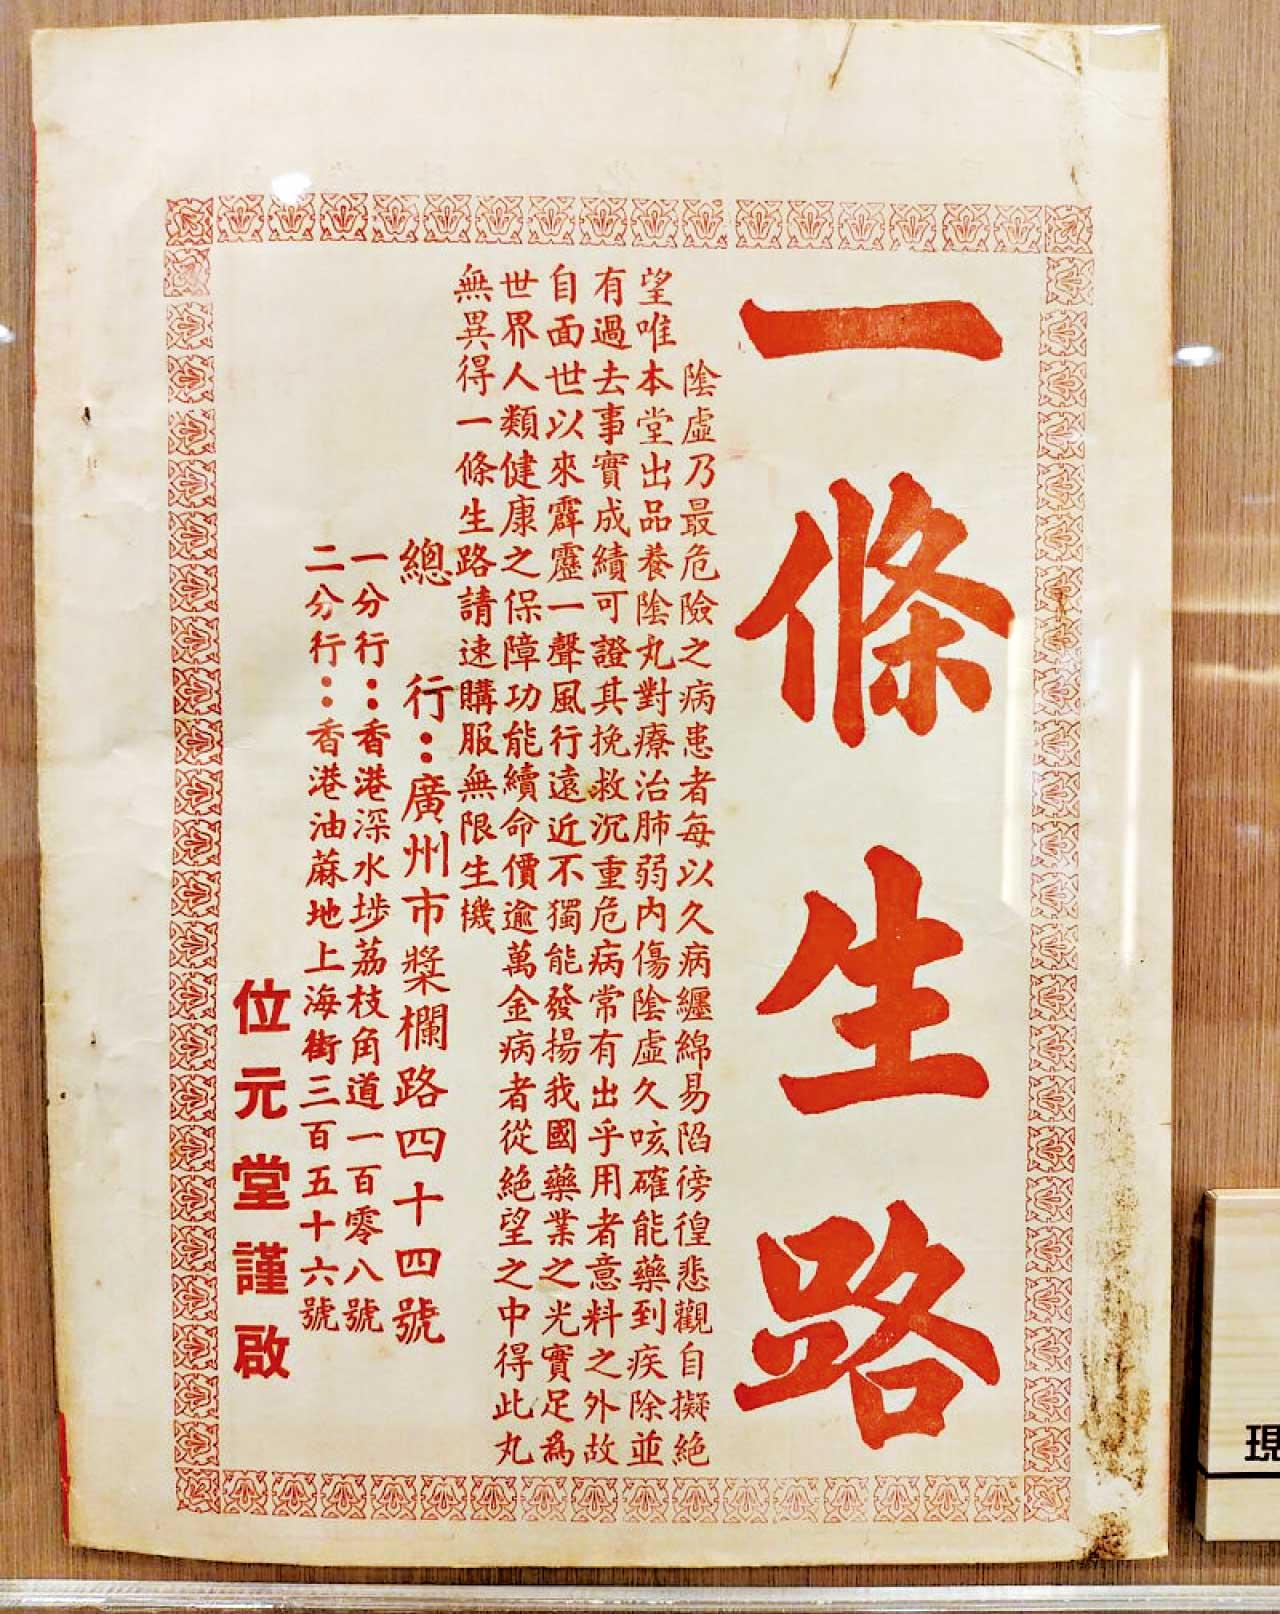 一條生路
陰虛乃最危險之病患者每以久病纏綿易陷傍徨悲觀自擬絕
望唯本堂出品養陰丸對療治肺弱內傷陰虛久咳確能藥到疾除並
有過去事實成績可證其挽救沉重危病常有出乎用者意料之外故
自面世以來霹靂一聲風行遠近不獨能發揚我國藥業之光實足為
世界人類健康之保障功能續命價逾萬金病者從絕望之中得此丸
無異得一條生路請速購服無限生機
總行：廣州市槳欄路四十四號
一分行：香港深水埗荔枝角道一百零八號
二分行：香港油蔴地上海街三百五十六號
位元堂謹啟
現